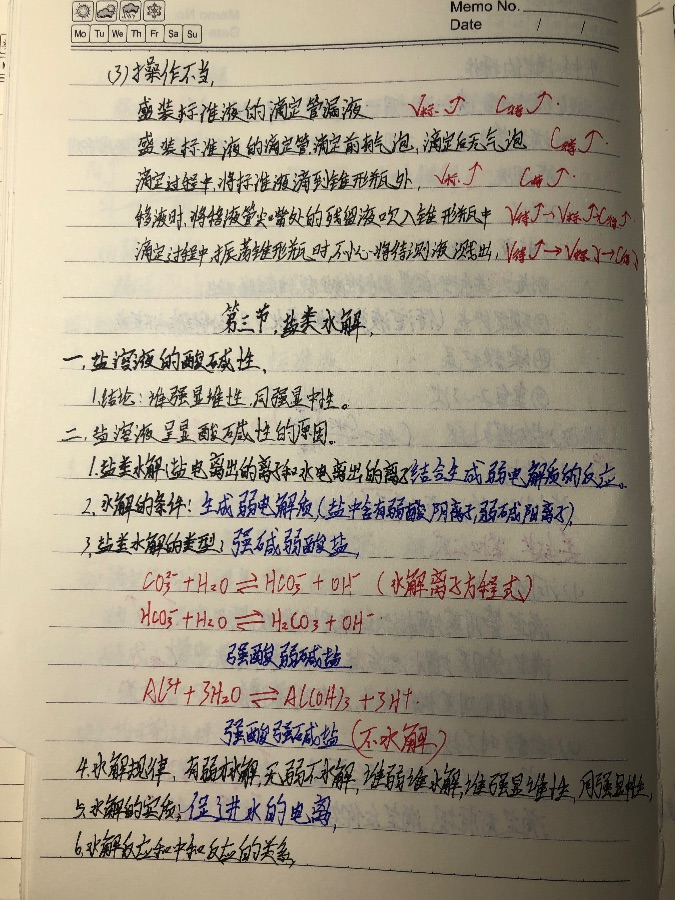 Memo No.
Mo Tu We Th Fr Sa Su
Date / /
(3)操作不当,
盛装标准液的滴定管漏液 V标↑ C待↑.
盛装标准液的滴定管滴定前有气泡,滴定后无气泡 C待↑.
滴定过程中,将标准液滴到锥形瓶外, V标↑ C待↑.
移液时,将移液管尖嘴处的残留液吹入锥形瓶中 V待↑→V标↑→C待↑.
滴定过程中,振荡锥形瓶时,不小心将待测液溅出, →V标↓→C待↓
第三节,盐类水解,
一,盐溶液的酸碱性,
1.结论:谁强显谁性,同强显中性。
二,盐溶液呈显酸碱性的原因。
1.盐类水解:盐电离出的离子和水电离出的离子结合生成弱电解质的反应。
2.水解的条件:生成弱电解质,(盐中含有弱酸阴离子,弱碱阳离子)
3,盐类水解的类型:强碱弱酸盐,
CO₃²⁻+H₂O⇌HCO₃⁻+OH⁻ (水解离子方程式)
HCO₃⁻+H₂O⇌H₂CO₃+OH⁻
强酸弱碱盐
Al³⁺+3H₂O⇌Al(OH)₃+3H⁺
强酸强碱盐(不水解)
4.水解规律,有弱才水解,无弱不水解,谁弱谁水解,谁强显谁性,同强显中性,
5.水解的实质:促进水的电离,
6.水解反应和中和反应的关系,